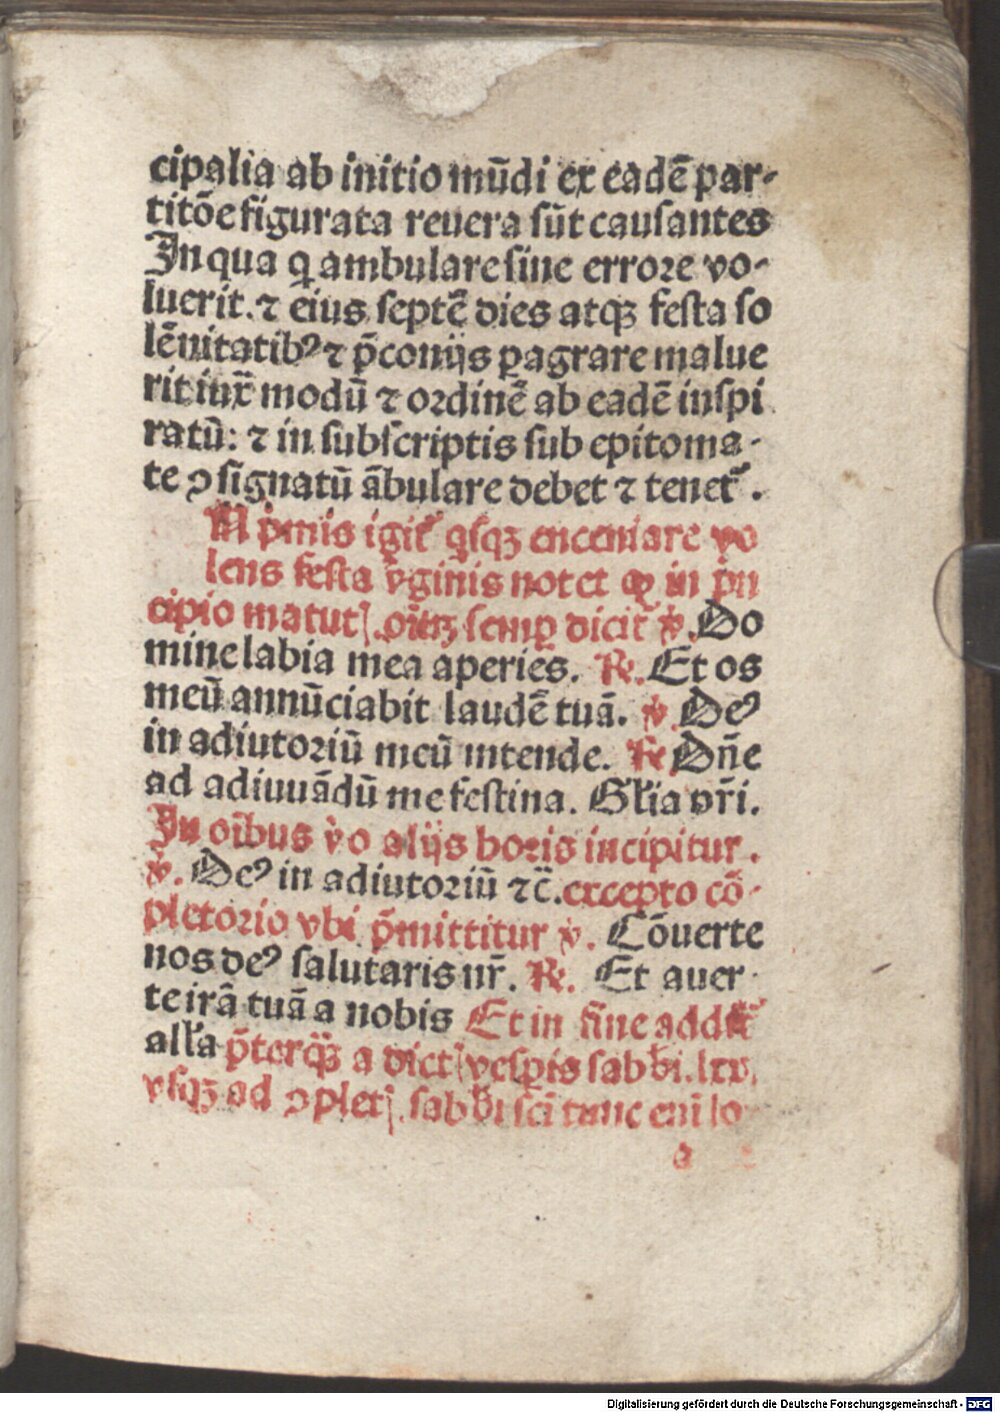 cipalia ab initio mūdi ex eadē par⸗
titōe figurata reuera sūt causantes
In qua q̄ ambulare sine errore vo⸗
luerit. ⁊ eius septē dies atqꝫ festa so
lēnitatibꝰ ⁊ p̄conijs ꝑagrare malue
rit iux̄ modū ⁊ ordinē ab eadē inspi
ratū: ⁊ in subscriptis sub epitoma⸗
te ꝯsignatū ābulare debet ⁊ tenet̄.
p̄mis igit̄ q̄sqꝫ enceniare vo
lens festa v̄ginis notet ꝙ in prin
cipio matut. semꝑ dicit̄ ℣. Do
mine labia mea aperies. ℟. Et os
meū annūciabit laudē tuā. ℣. Deꝰ
in adiutoriū meū intende. ℟ Dn̄e
ad adiuuādū me festina. Glīa pr̄i.
In oībus v̄o alijs horis incipitur.
℣. Deꝰ in adiutoriū ⁊c̄. excepto cō⸗
pletorio vbi p̄mittitur ℣. Cōuerte
nos deꝰ salutaris nr̄. ℟. Et auer⸗
te irā tuā a nobis Et in fine addit̄
alla p̄terqꝫ̄ a dict vesꝑis sabbi. lxx.
vsqꝫ ad ꝯplet. sabbi sci tunc eni lo
a
Digitalisierung gefördert durch die Deutsche Forschungsgemeinschaft - DFG